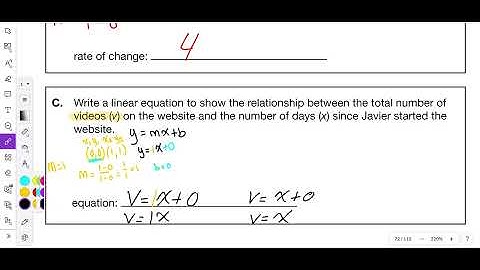 1-0
rate of change: 4
C. Write a linear equation to show the relationship between the total number of
videos (v) on the website and the number of days (x) since Javier started the
website. y = mx+b
x₁ y₁ x₂ y₂
(0,0)(1,1) y = 1x+0
m=1 m = 1-0/1-0 = 1/1 = 1 b=0
equation: V = 1x+0 v = x+0
v = 1x v = x
72 / 112 220%